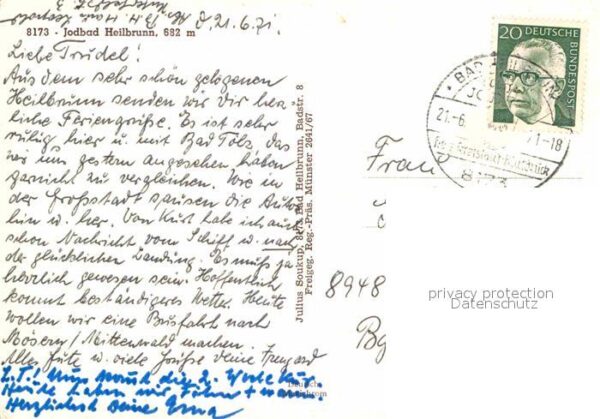 d. 21.6.71.
8173 - Jodbad Heilbrunn, 682 m
Liebe Trudel!
Aus dem sehr schön gelegenen
Heilbrunn senden wir dir herz-
liche Feriengrüße. Es ist sehr
ruhig hier u. mit Bad Tölz, das
wir uns gestern angesehen haben
garnicht zu vergleichen. Wie in
der Großstadt sausen die Autos
hin u. her. Von Kurt habe ich auch
schon Nachricht vom Schiff u. nach
der glücklichen Landung. Es muß ja
herrlich gewesen sein. Hoffentlich
kommt beständigeres Wetter. Heute
wollen wir eine Busfahrt nach
Mösern/Mittenwald machen.
Alles Gute u. viele Grüße deine
L.T! Nun die 2. Woche
Heute haben wir Föhn + warm.
Herzlichst Deine Erna
Julius Soukup, 8173 Bad Heilbrunn, Badstr. 8
Freigeg. Reg.-Präs. Münster 2641/67
20 DEUTSCHE
BUNDESPOST
BAD
21.-6.
71-18
8173
Frau
8948
Bg
privacy protection
Datenschutz